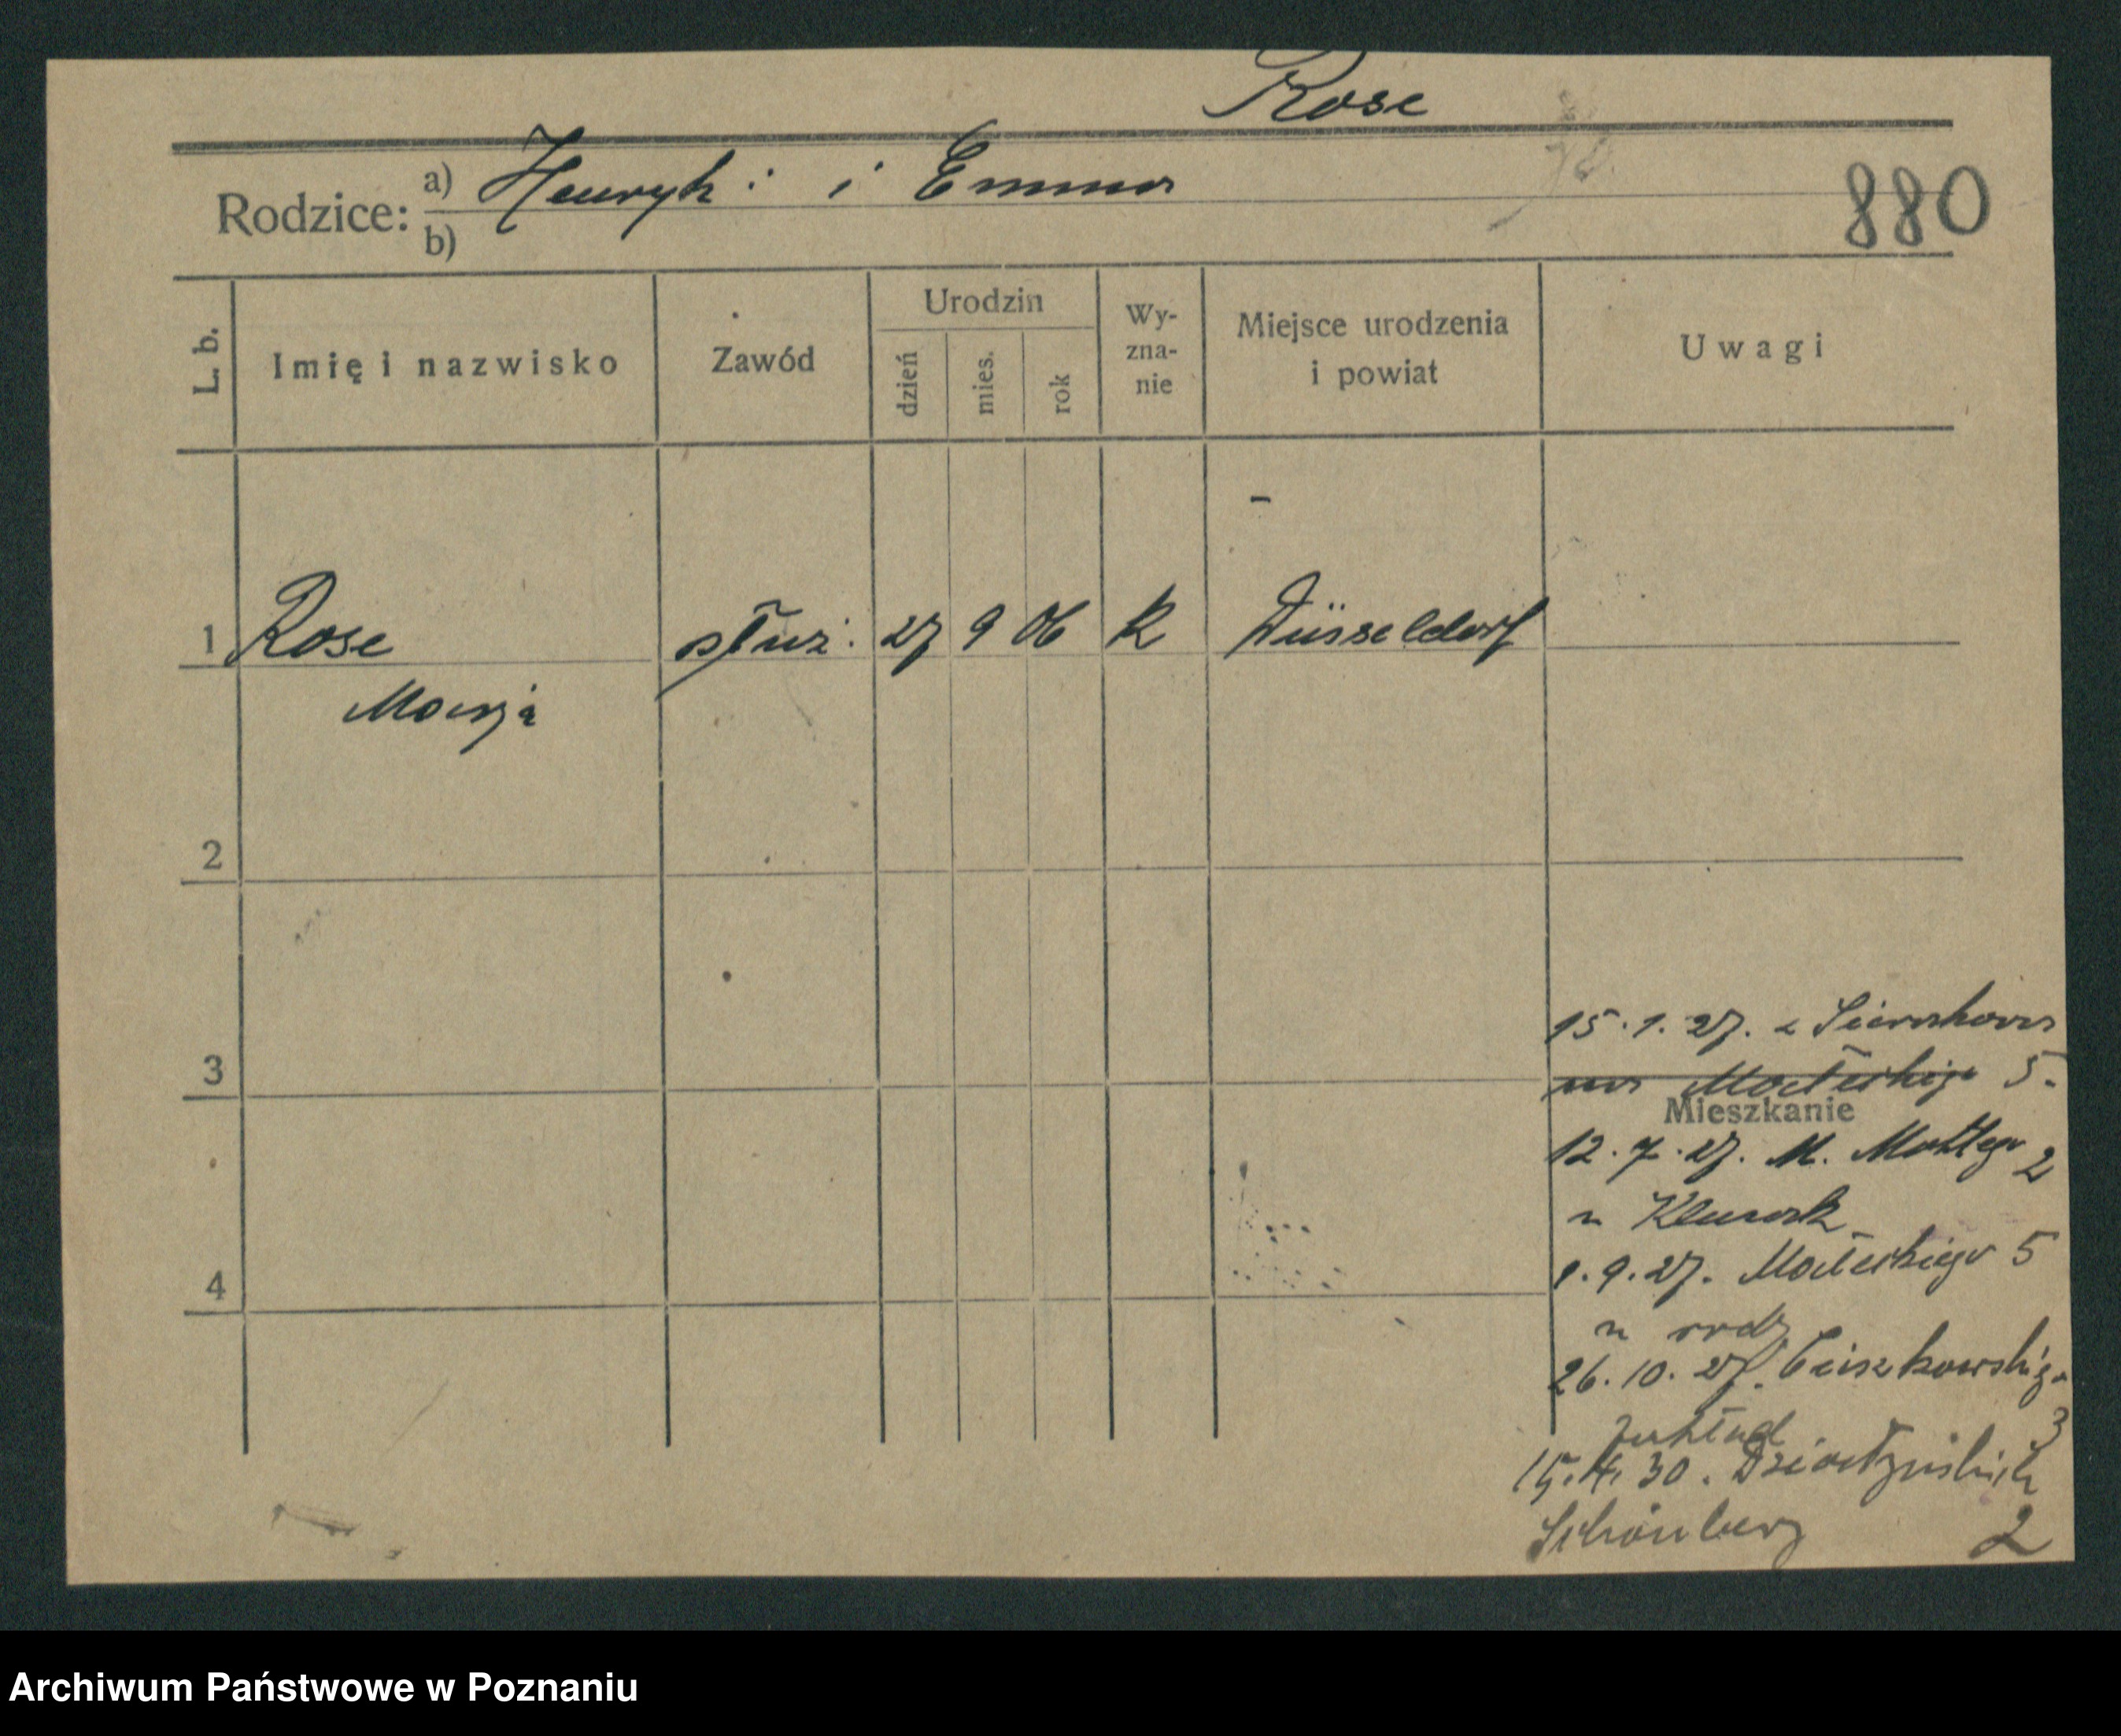 Rose
Rodzice: a) Henryk i Emma
b)
880
L. b.
Imię i nazwisko
Zawód
Urodzin
dzień
mies.
rok
Wy-
zna-
nie
Miejsce urodzenia
i powiat
Uwagi
1 Rose służ. 27 9 06 k Düsseldorf
Marja
2
3
4
15.1.27. z
na Małeckiego 5.
Mieszkanie
12.7.27. M. Mottego 2
u
1.9.27. Małeckiego 5
u rodz
26.10.27. Cieszkowskiego
3
15.4.30. Działyńskich
Schönberg 2
Archiwum Państwowe w Poznaniu